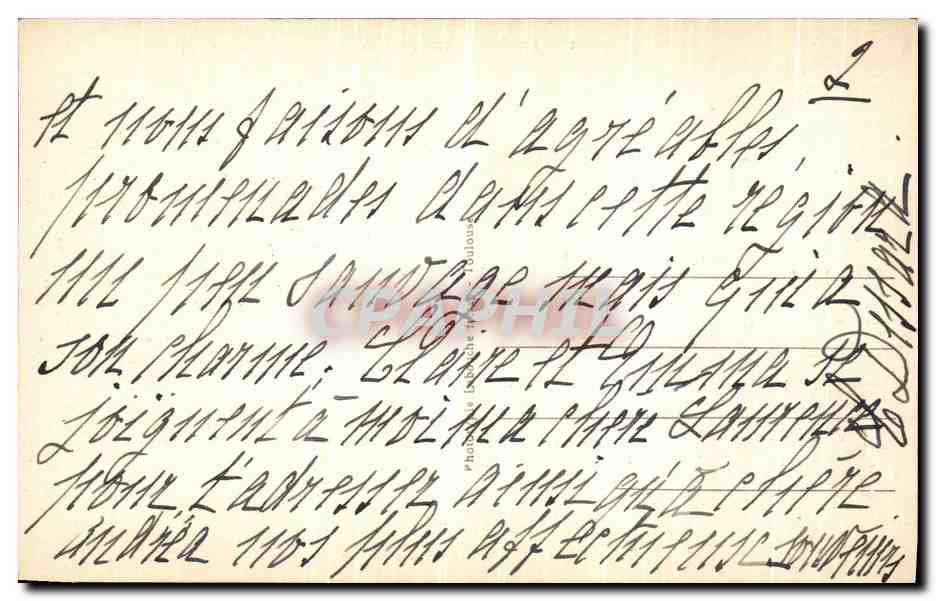 2
et nous faisons d'agréables
promenades dans cette région
un peu sauvage mais qui a
son charme. Claire et Emma se
joignent à moi ma chère Laurence
pour t'adresser ainsi qu'à chère
Andréa nos plus affectueux souvenirs
CPAPHIL
Phototypie Labouche frères, Toulouse